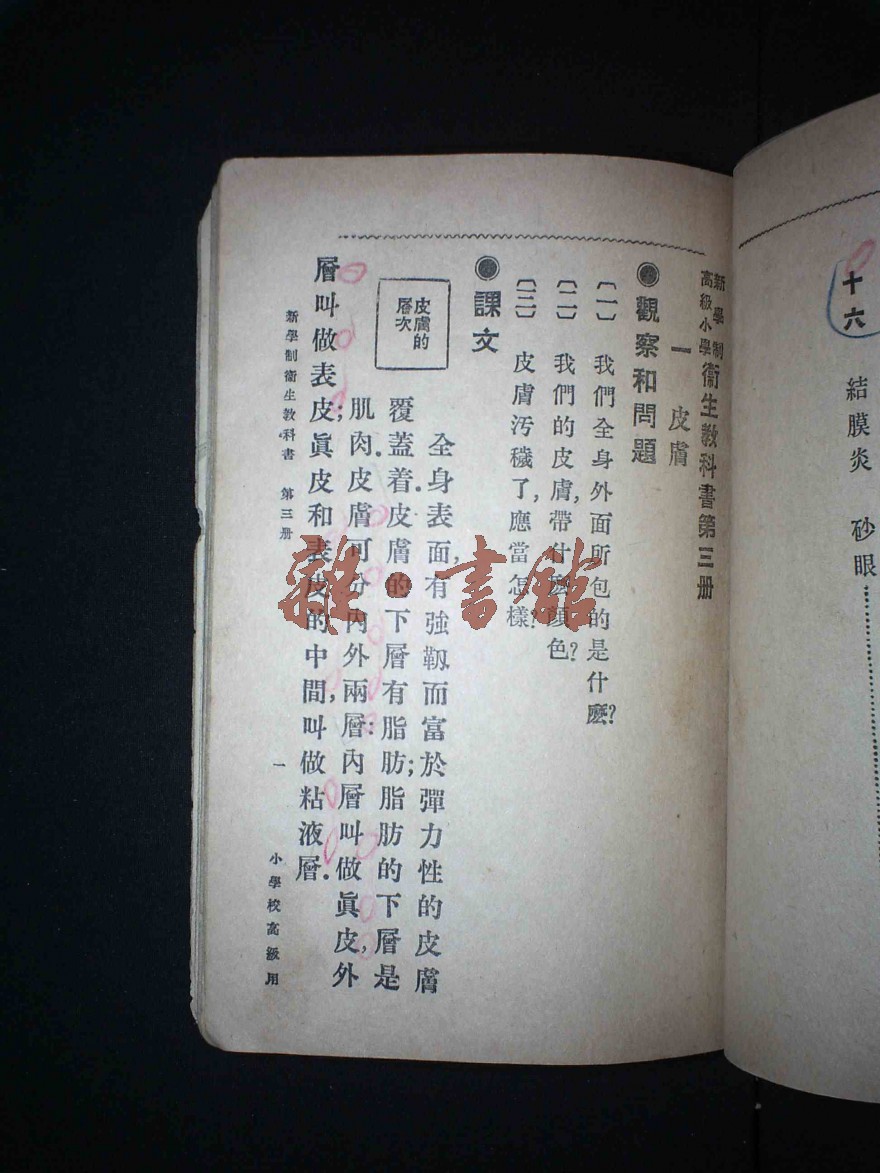 十六 結膜炎 砂眼
新學制
高級小學 衞生教科書第三册
一 皮膚
觀察和問題
〔一〕 我們全身外面所包的是什麽?
〔二〕 我們的皮膚,帶什麽顏色?
〔三〕 皮膚汚穢了,應當怎樣?
課文
皮膚的
層次
全身表面,有強靱而富於彈力性的皮膚
覆蓋着.皮膚的下層有脂肪;脂肪的下層是
肌肉.皮膚可分內外兩層:內層叫做眞皮,外
層叫做表皮;眞皮和表皮的中間,叫做粘液層.
新學制衞生教科書 第三册 一 小學校高級用
雜·書館